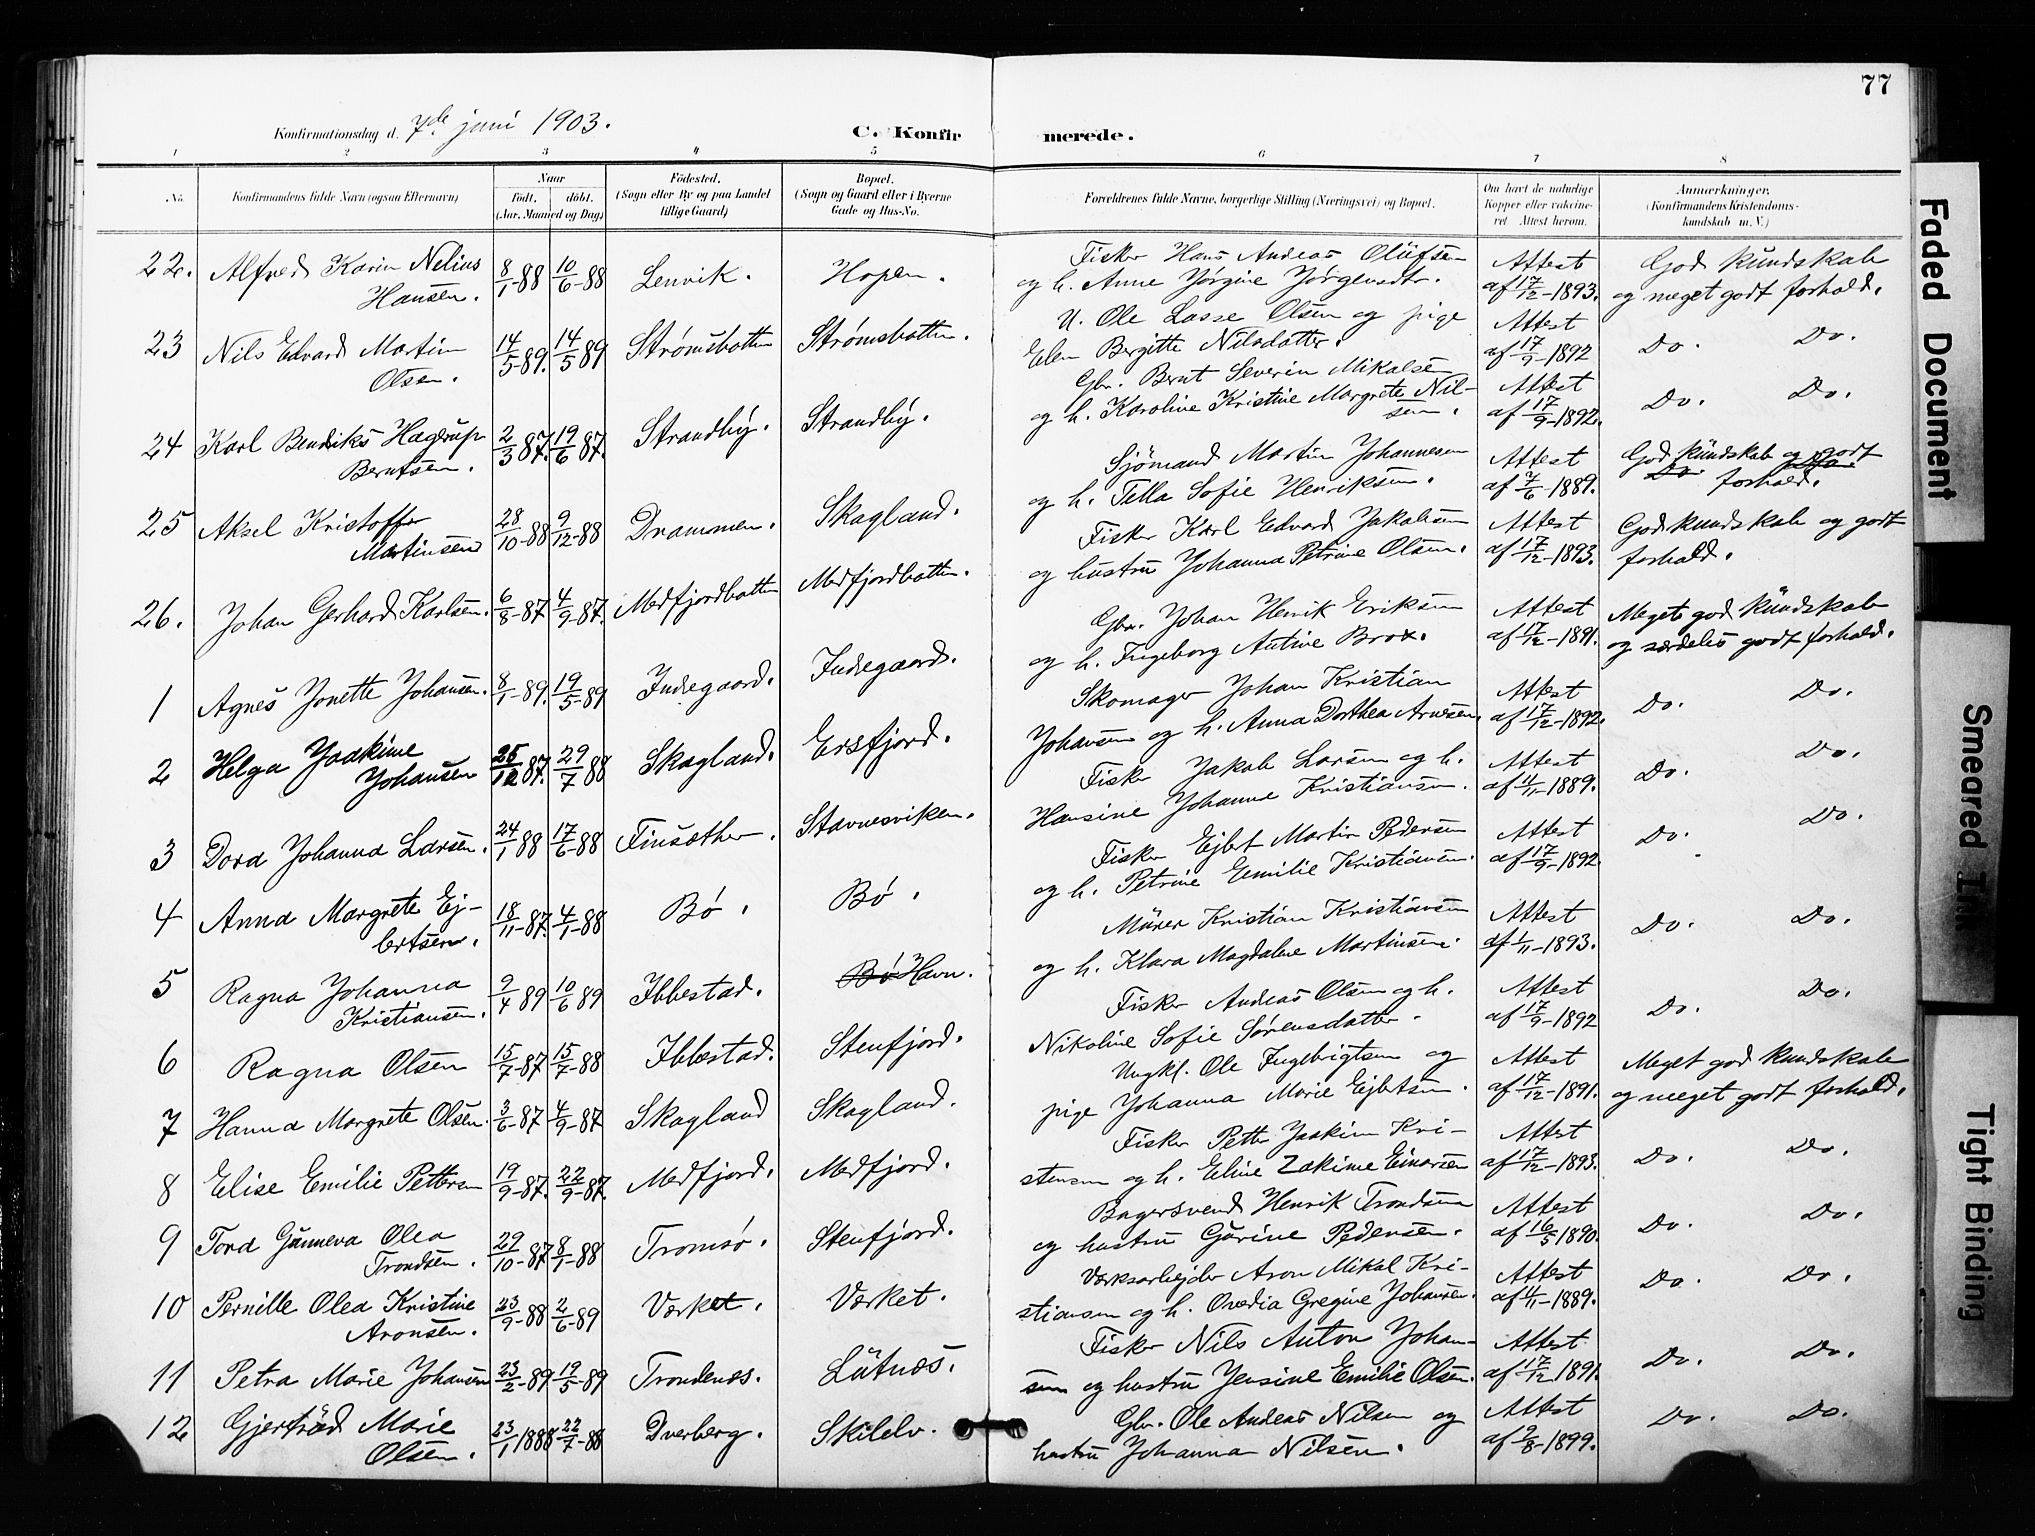 77
Konfirmationsdag d. 7de juni 1903.
C. Konfirmerede.
1 2 3 4 5 6 7 8
No. Konfirmandens fulde Navn (ogsaa Efternavn) Naar Födt. döbt. (Aar, Maaned og Dag) Födested. (Sogn eller By og paa Landet tillige Gaard) Bopæl. (Sogn og Gaard eller i Byerne Gade og Hus-No. Forældrenes fulde Navne, borgerlige Stilling (Næringsvei) og Bopæl. Om havt de naturlige Kopper eller vakcineret Attest herom. Anmærkninger, (Konfirmandens Kristendomskundskab m. V.)
22. Alfred Karin Nelius Hansen. 8/1-88 10/6-88 Lenvik. Hopen. Fisker Hans Andreas Olüfsen og h. Anne Jørgine Jørgensdtr. Attest af 17/12-1893. God kündskab og meget godt forhold.
23 Nils Edvard Martin Olsen. 14/5-89. 14/5 89 Strømsbotten Strømsbotten. U. Ole Lasse Olsen og pige Elen Bergitte Nilsdatter. Attest af 17/9-1892 Do. Do.
24 Karl Bendiks Hagerup Berntsen. 2/3 87. 19/6 87. Strandby. Strandby. Gbr. Bernt Severin Mikalsen og h. Karoline Kristine Margrete Nilsen. Attest af 17/9-1892. Do. Do.
25 Aksel Kristoffer Martinsen 28/10-88 9/12-88 Drammen. Skagland. Sjömand Martin Johannesen og h. Tilla Sofie Henriksen. Attest af 7/6-1889. God kündskab og godt forhold.
26. Johan Gerhard Karlsen. 6/8-87 4/9-87. Medfjordbotten Medfjordbotten. Fisker Karl Edvard Jakobsen og hustru Johanna Petrine Olsen. Attest af 17/12-1893. God kundskab og godt forhold.
1 Agnes Jonette Johansen. 8/1-89. 19/5-89 Indregaard. Indregaard. Gbr. Johan Henrik Eriksen og h. Ingeborg Antine Brox. Attest af 17/12-1891. Meget god kündskab og særdeles godt forhold.
2 Helga Joakime Johansen 25/12 87. 29/7 88 Skagland. Ersfjord. Skomager Johan Kristian Johansen og h. Anna Dorthea Arnesen. Attest af 17/12-1892. Do. Do.
3 Dora Johanna Larsen. 24/1 88 17/6-88 Finsæther. Stavnesviken. Fisker Jakob Larsen og h. Hansine Johanne Kristiansen. Attest af 4/11-1889. Do. Do.
4 Anna Margrete Ejbertsen. 18/11-87. 4/1-88 Bø. Bø. Fisker Ejbert Martin Pedersen og h. Petrine Emilie Kristiansen. Attest af 17/9-1892 Do. Do.
5 Ragna Johanna Kristiansen. 9/4 89 10/6 89 Ibbestad. Bø Havn. Mürer Kristian Kristiansen og h. Klara Magdalene Martinsen. Attest af 1/11-1893. Do. Do.
6 Ragna Olsen 15/7-87 15/7-88 Ibbestad. Stenfjord. Fisker Andreas Olsen og h. Nikoline Sofie Sørensdatter. Attest af 17/9-1892 Do. Do.
7 Hanna Margrete Olsen. 3/6-87 4/9-87 Skagland Skagland. Ungkl. Ole Ingebrigtsen og pige Johanna Marie Ejbertsen. Attest af 17/12-1891. Meget god kundskab og meget godt forhold.
8 Elise Emilie Pettersen 19/9-87. 22/9-87. Medfjord. Medfjord. Fisker Petter Joakim Kristensen og h. Eline Zakime Einarsen Attest af 17/12-1893. Do. Do.
9 Tora Günneva Olea Trondsen. 29/10-87 8/1-88 Tromsø. Stenfjord. Bagersvend Henrik Trondsen og hustru Gürine Pedersen. Attest af 16/5 1890. Do. Do.
10 Pernille Olea Kristine Aronsen. 23/9-88 2/6-89 Værket. Værket. Værksarbejder Aron Mikal Kristiansen og h. Ovedia Gregine Johansen. Attest af 4/11-1889. Do. Do.
11 Petra Marie Johansen 23/2-89 19/5-89 Trondenæs. Lütnæs. Fisker Nils Anton Johansen og hustru Jensine Emilie Olsen. Attest af 17/12 1891. Do. Do.
12 Gjertrüd Marie Olsen. 23/1 1888 22/7-88 Dverberg. Skilelv. Gbr. Ole Andreas Nilsen og hustru Johanna Nilsen. Attest af 9/8-1899. Do. Do.
Faded Document
Smeared Ink
Tight Binding